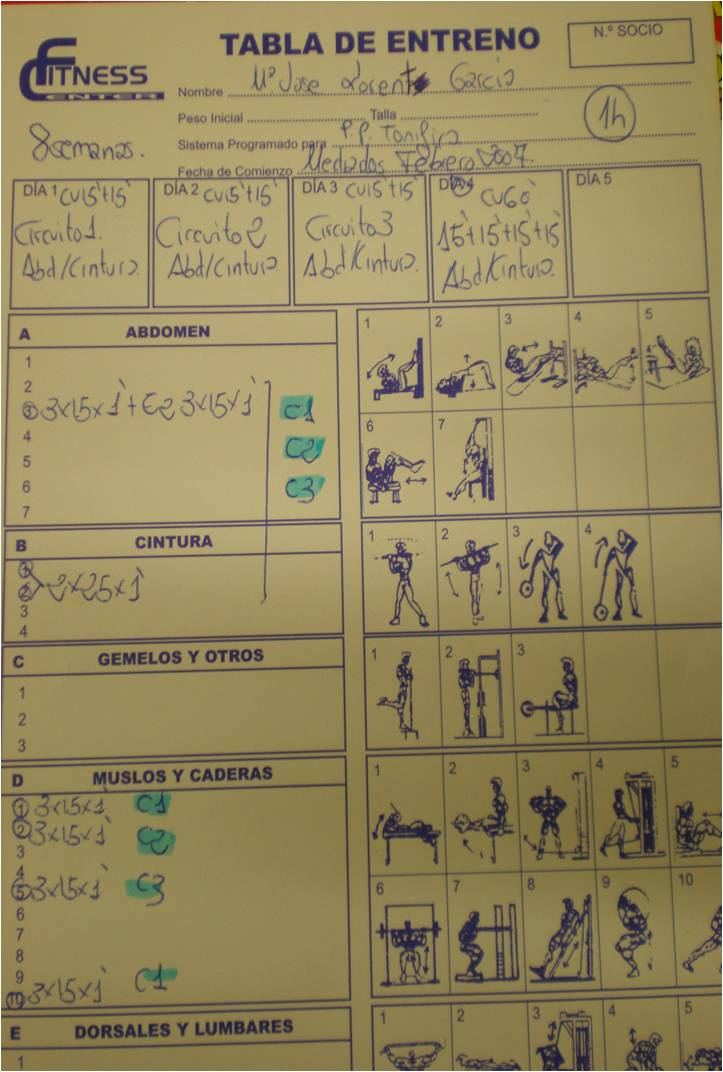 FITNESS
CENTER
TABLA DE ENTRENO
N.º SOCIO
Nombre Mª Jose Lorente Garcia
Peso Inicial Talla
1h
8 semanas.
Sistema Programado para P.P. Tonifica
Fecha de Comienzo Mediados Febrero 2007.
DÍA 1 CV15'+15'
Circuito 1.
Abd/Cintura.
DÍA 2 CV15'+15'
Circuito 2
Abd/Cintura.
DÍA 3 CV15'+15'
Circuito 3
Abd/Cintura.
DÍA 4 CV60'
15'+15'+15'+15'
Abd/Cintura.
DÍA 5
A ABDOMEN
1
2
3 3x15x1'+ 3x15x1' C1
4 C2
5
6 C3
7
1 2 3 4 5
6 7
B CINTURA
1
2 2x25x1'
3
4
1 2 3 4
C GEMELOS Y OTROS
1
2
3
1 2 3
D MUSLOS Y CADERAS
1 3x15x1' C1
2 3x15x1' C2
3
4
5 3x15x1' C3
6
7
8
9
10 3x15x1' C1
1 2 3 4 5
6 7 8 9 10
E DORSALES Y LUMBARES
1
1 2 3 4 5